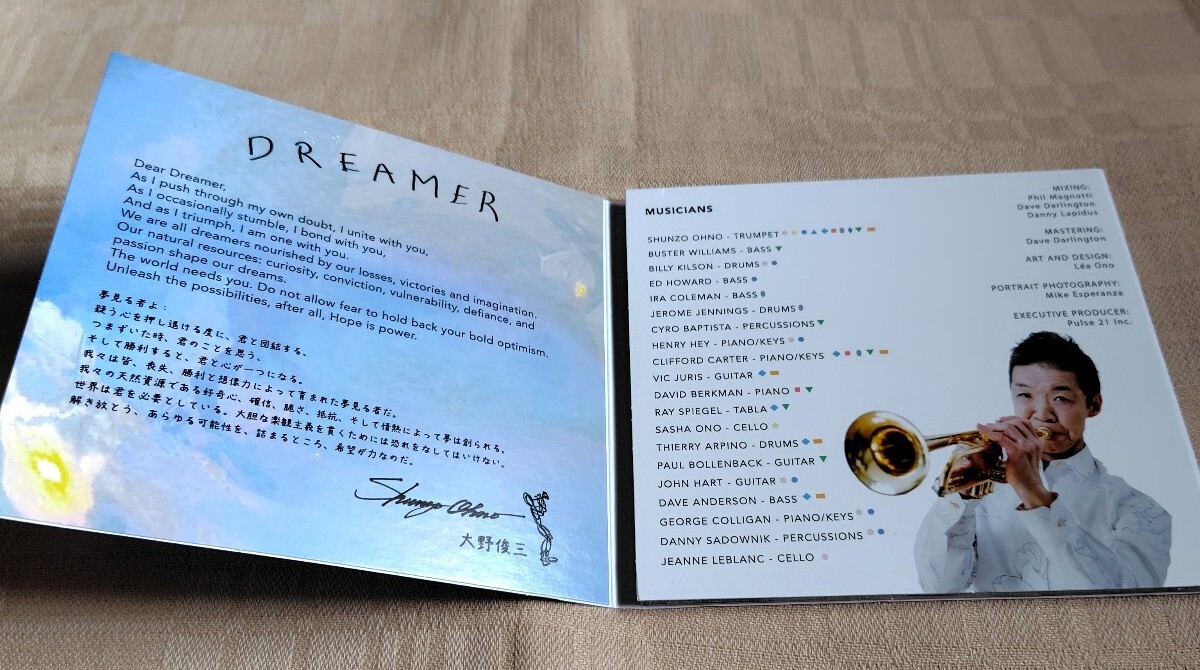 DREAMER
Dear Dreamer,
As I push through my own doubt, I unite with you,
As I occasionally stumble, I bond with you,
And as I triumph, I am one with you.
We are all dreamers nourished by our losses, victories and imagination.
Our natural resources: curiosity, conviction, vulnerability, defiance, and
passion shape our dreams.
The world needs you. Do not allow fear to hold back your bold optimism.
Unleash the possibilities, after all, Hope is power.
夢見る者よ：
疑う心を押し退ける度に、君と団結する、
つまずいた時、君のことを思う、
そして勝利すると、君と心が一つになる。
我々は皆、喪失、勝利と想像力によって育まれた夢見る者だ。
我々の天然資源である好奇心、確信、脆さ、抵抗、そして情熱によって夢は創られる。
世界は君を必要としている。大胆な楽観主義を貫くためには恐れをなしてはいけない。
解き放とう、あらゆる可能性を、詰まるところ、希望が力なのだ。
Shunzo Ohno
大野俊三
MUSICIANS
SHUNZO OHNO - TRUMPET
BUSTER WILLIAMS - BASS
BILLY KILSON - DRUMS
ED HOWARD - BASS
IRA COLEMAN - BASS
JEROME JENNINGS - DRUMS
CYRO BAPTISTA - PERCUSSIONS
HENRY HEY - PIANO/KEYS
CLIFFORD CARTER - PIANO/KEYS
VIC JURIS - GUITAR
DAVID BERKMAN - PIANO
RAY SPIEGEL - TABLA
SASHA ONO - CELLO
THIERRY ARPINO - DRUMS
PAUL BOLLENBACK - GUITAR
JOHN HART - GUITAR
DAVE ANDERSON - BASS
GEORGE COLLIGAN - PIANO/KEYS
DANNY SADOWNIK - PERCUSSIONS
JEANNE LEBLANC - CELLO
MIXING:
Phil Magnotti
Dave Darlington
Danny Lapidus
MASTERING:
Dave Darlington
ART AND DESIGN:
Léa Ono
PORTRAIT PHOTOGRAPHY:
Mike Esperanza
EXECUTIVE PRODUCER:
Pulse 21 Inc.